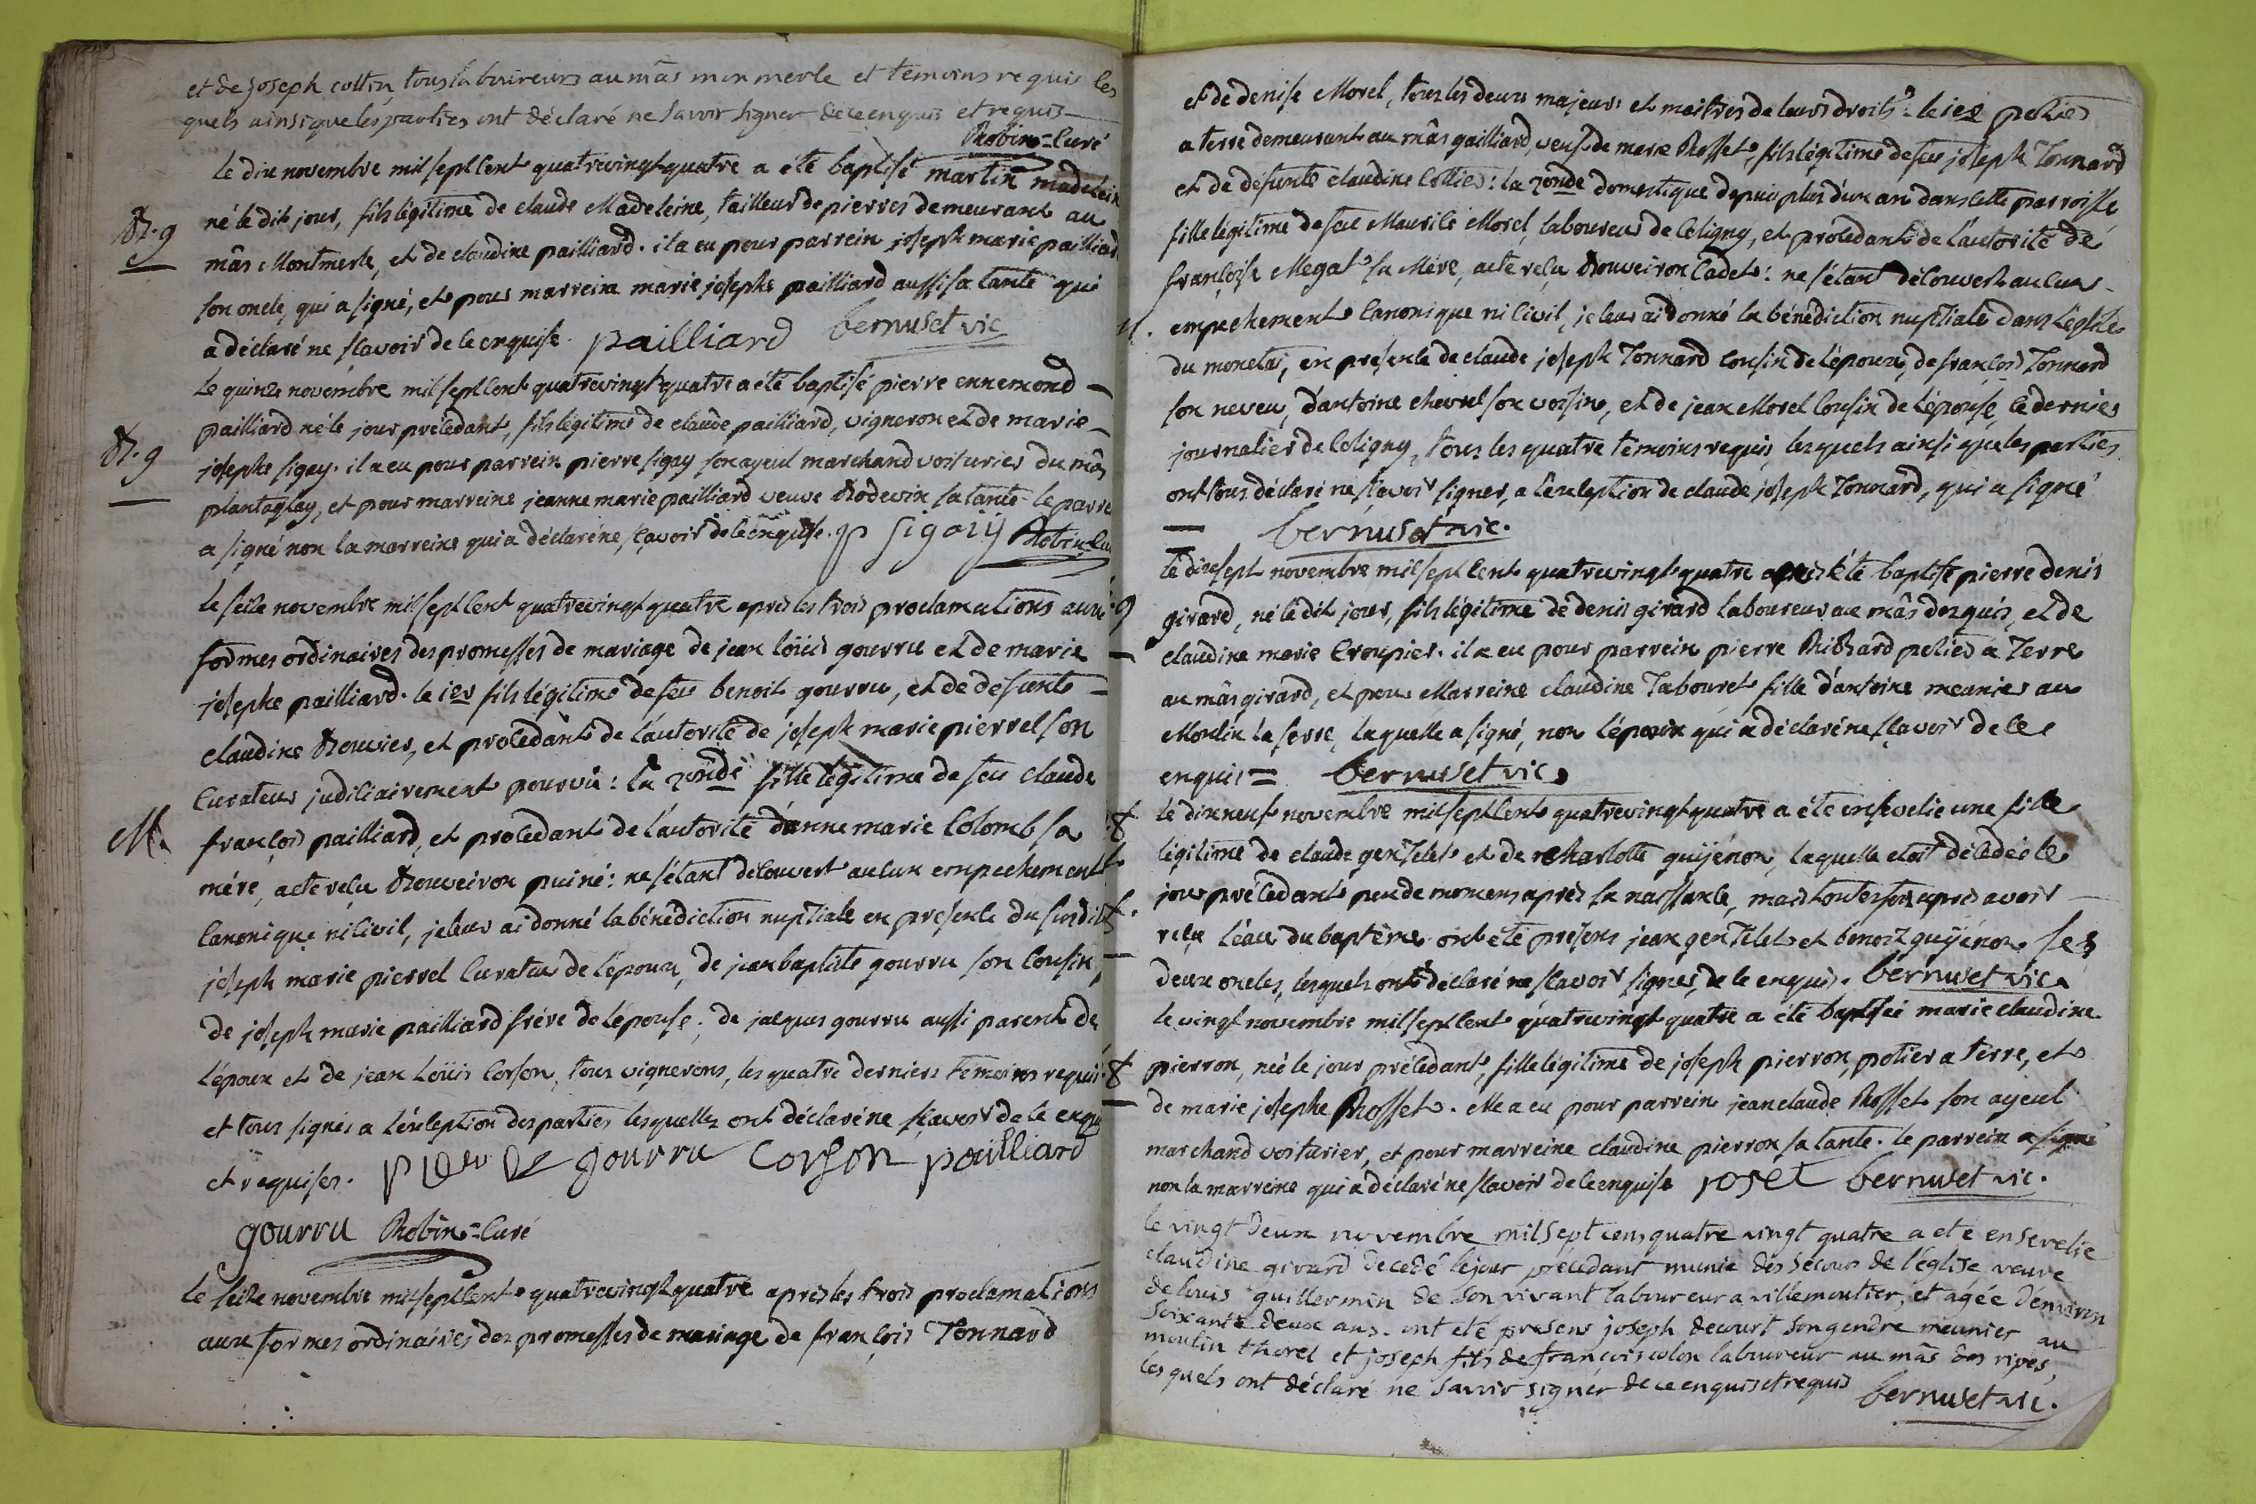 et de joseph collin, tous laboureurs au mâs monmerle et temoins requis les
quels ainsi que les parties ont déclaré ne savoir signer de ce enquis et requis
Robin=Curé
Le dix novembre mil sept cent quatrevingt quatre a été baptisé martin madeleine
Bt. g
né le dit jour, fils légitime de claude Madeleine, tailleur de pierres demeurant au
mâs Montmerle, et de claudine pailliard. il a eu pour parrein joseph marie pailliard
son oncle, qui a signé, et pour marreine marie josephe pailliard aussi sa tante qui
a déclaré ne sçavoir de ce enquise. pailliard bernuset vic
Le quinze novembre mil sept cent quatrevingt quatre a été baptisé pierre ennemond
Bt. g
pailliard né le jour précédant, fils légitime de claude pailliard, vigneron et de marie
josephe sigay. il a eu pour parrein pierre sigay son ayeul marchand voiturier du mâs
plantaglay, et pour marreine jeanne marie pailliard veuve Bodevin sa tante. le parrein
a signé non la marreine qui a déclaré ne sçavoir de ce enquise. p sigaiy Robin=Cu
Le seize novembre mil sept cent quatrevingt quatre après les trois proclamations aux
formes ordinaires des promesses de mariage de jean loüis gourru et de marie
josephe pailliard. le 1er fils légitime de feu benoit gourru, et de defunte
claudine Bouvier, et procedant de l'autorité de joseph marie pierrel son
Curateur judiciairement pourvu: la 2onde fille légitime de feu claude
M.
françois pailliard, et procedant de l'autorité d'anne marie Colomb sa
mére, acte reçu Bouveiron puiné: ne s'étant découvert aucun empechement
Canonique ni Civil, je leur ai donné la bénédiction nuptiale en presence du susdit
joseph marie pierrel Curateur de l'époux, de jean baptiste gourru son Cousin,
de joseph marie pailliard frére de l'épouse, de jacques gourru aussi parent de
l'époux et de jean Loüis Corson, tous vignerons, les quatre derniers témoins requis
et tous signés a l'exception des parties lesquelles ont déclaré ne sçavoir de ce enqu
et requises. gourru corson pailliard
gourru Robin=Curé
Le seize novembre mil sept cent quatrevingt quatre après les trois proclamations
aux formes ordinaires des promesses de mariage de françois Tonnard
et de denise Morel, tous les deux majeurs et maitres de leurs droits: le 1er potier
a terre demeurant au mâs gailliard, veuf de marie Rosset, fils légitime de feu joseph Tonnard
et de defunte claudine Collier: la 2onde domestique depuis plus d'un an dans cette parroisse
fille légitime de feu Maurice Morel, laboureur de Coligny, et procédant de l'autorité de
françoise Megat sa Mére, acte reçu Bouveiron Cadet: ne s'étant découvert aucun
M. empechement Canonique ni Civil, je leur ai donné la bénédiction nuptiale dans l'église
du monetai, en présence de claude joseph Tonnard Cousin de l'époux, de françois Tonnard
son neveu, d'antoine chevrel son voisin, et de jean Morel Cousin de l'épouse, ce dernier
journalier de Coligny, tous les quatre témoins requis, les quels ainsi que les parties
ont tous déclaré ne sçavoir signer, a l'exception de claude joseph Tonnard, qui a signé
bernuset vic.
Le dix sept novembre mil sept cent quatrevingt quatre a été baptisé pierre denis
g
girard, né le dit jour, fils légitime de denis girard laboureur au mâs dezguis, et de
claudine marie Croupier. il a eu pour parrein pierre Richard potier a Terre
au mâs girard, et pour Marreine claudine Tabouret fille d'antoine meunier au
Moulin la serre, laquelle a signé, non l'époux qui a déclaré ne sçavoir de ce
enquis = bernuset vic.
Le dix neuf novembre mil sept cent quatrevingt quatre a été ensevelie une fille
légitime de claude gentelet et de charlotte guijénon, laquelle etoit décédée le
jour précédant peu de momens après sa naissance, mais toutesfois après avoir
reçu l'eau du baptême. ont été présens jean gentelet et benoit guijénon ses
deux oncles, lesquels ont déclaré ne sçavoir signer, de ce enquis. bernuset vic.
Le vingt novembre mil sept cent quatrevingt quatre a été baptisée marie claudine
pierron, née le jour précédant, fille légitime de joseph pierron, potier a terre, et
de marie josephe Rosset. elle a eu pour parrein jean claude Rosset son ayeul
marchand voiturier, et pour marreine claudine pierron sa tante. le parrein a signé
non la marreine qui a déclaré ne sçavoir de ce enquise roset bernuset vic.
le vingt deux novembre mil sept cens quatre vingt quatre a eté ensevelie
claudine girard decedé le jour précédant munie des secours de l'église veuve
de louis guillermin de son vivant laboureur a villemoutier, et agée d'environ
soixante deux ans. ont eté presens joseph decourt son gendre meunier au
moulin thorel et joseph fils de francois colon laboureur au mâs des ripes,
les quels ont déclaré ne savoir signer de ce enquis et requis bernuset vic.